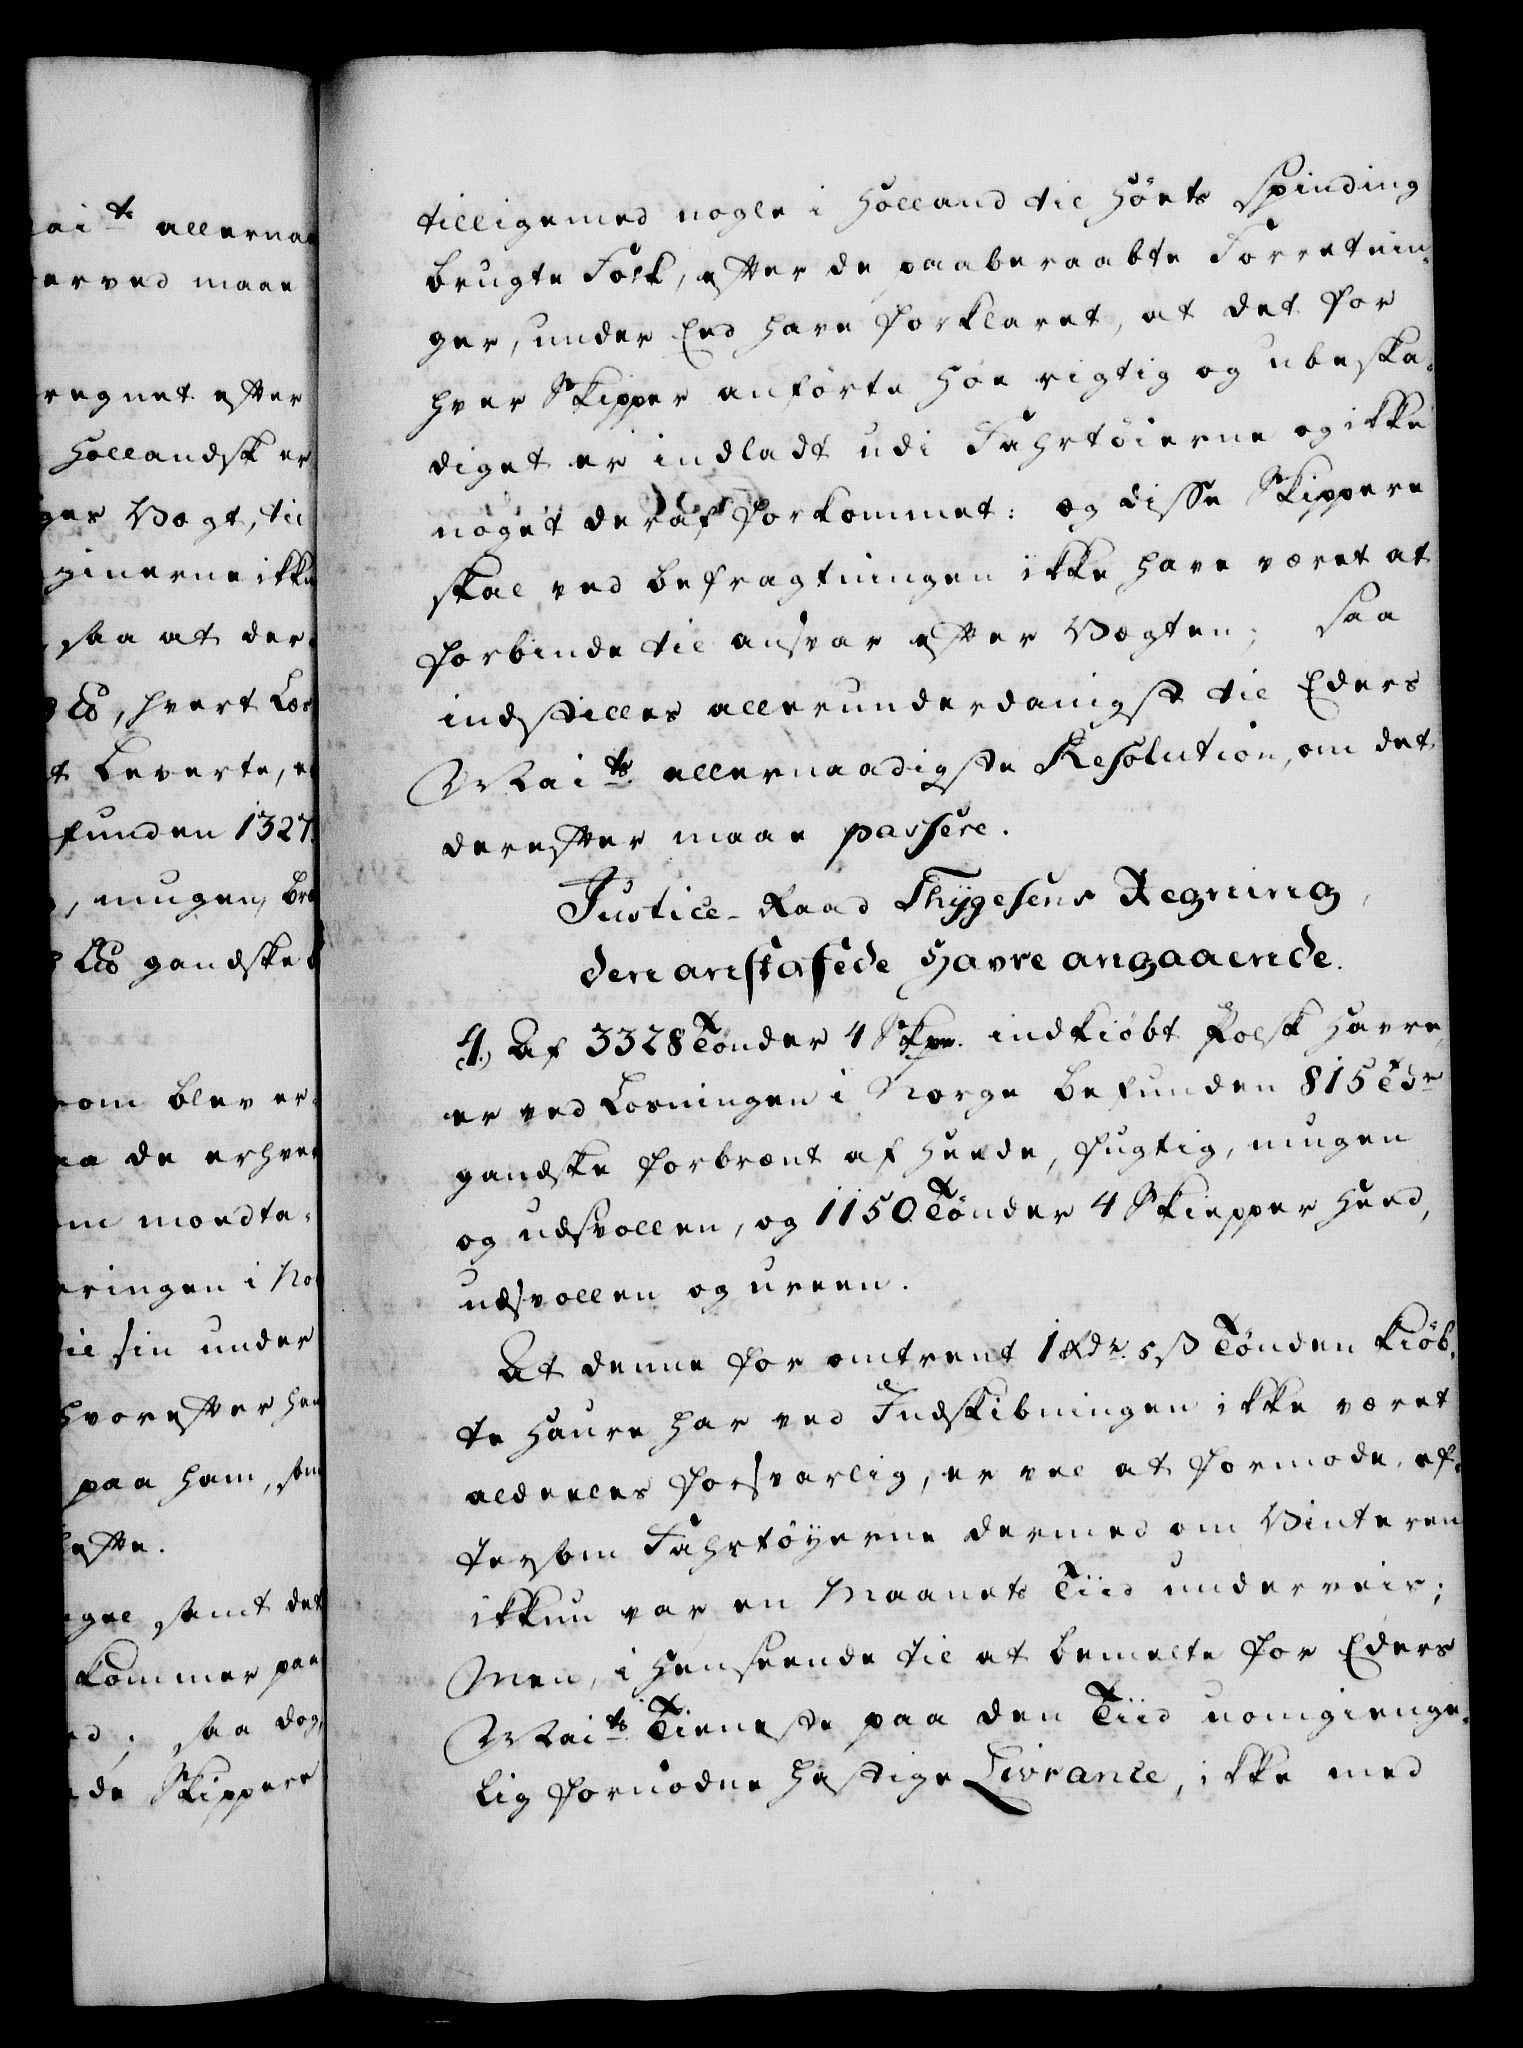 ai ts allernaa
erved maae
regnet efter
Hollandsk er
ges Vægt, til
ginerne ikke
saa at der¬
℔, hvert Læs
t Leverte, e
funden 1327
, mugen, bræ
℔ gandske
om blev er¬
aa de erhver
em modta¬
eringen i No
til sin under
hvorefter han
paa ham, som
efte.
egne samt det
kommer paa
ed; saa dog
de Skippere
tilligemed nogle i Holland til Höets Spinding
brugte Folk, efter de paaberaabte Forretnin¬
ger, under Eed have forklaret, at det for
hver Skipper anförte Höe rigtig og ubeska¬
diget er indladt udi Fahrtöierne og ikke
noget deraf forkommet: og disse Skippere
skal ved befragtningen ikke have været at
forbinde til ansvar efter Vægten; saa
indstilles allerunderdanigst til Eders
Maits. allernaadigste Resolution, om det
derefter maae passere.
Justice-Raad Thÿgesens Regning,
den anskafede Havre angaaende.
4.) Af 3328 Tönder 4 Skpr. indkiöbt Polsk Havre,
er ved Losningen i Norge befunden 815 Tdr
gandske forbrænt af Heede, fugtig, mugen
og udsvollen, og 1150 Tönder 4 Skiepper Heed,
udsvollen og ureen.
At denne for omtrent 1 Rdr. 5 ß Tönden kiöb¬
te Haure har ved Indskibningen ikke været
aldeeles forsvarlig, er vel at formode, ef¬
tersom Fahrtöyerne dermed om Vinteren
ikkun var en Maanets Tiid underveis;
Men, i Henseende til at bemelte for Eders
Maits. Tieneste paa den Tiid uomgienge¬
lig fornödne hastige Livrance, ikke med